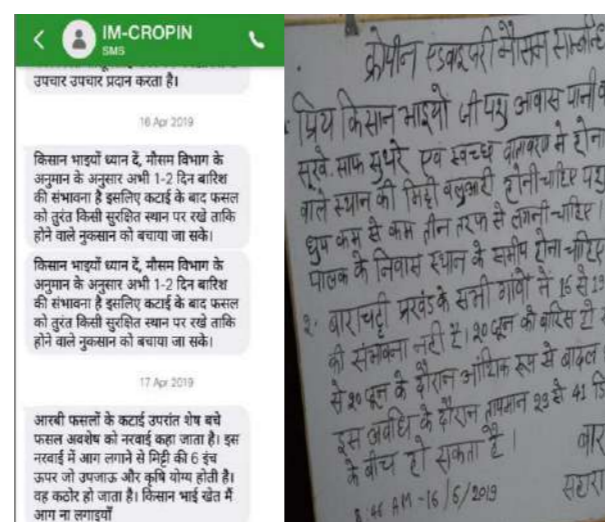 IM-CROPIN
SMS
उपचार उपचार प्रदान करता है।
16 Apr 2019
किसान भाइयों ध्यान दें, मौसम विभाग के
अनुमान के अनुसार अभी 1-2 दिन बारिश
की संभावना है इसलिए कटाई के बाद फसल
को तुरंत किसी सुरक्षित स्थान पर रखे ताकि
होने वाले नुकसान को बचाया जा सके।
किसान भाइयों ध्यान दें, मौसम विभाग के
अनुमान के अनुसार अभी 1-2 दिन बारिश
की संभावना है इसलिए कटाई के बाद फसल
को तुरंत किसी सुरक्षित स्थान पर रखे ताकि
होने वाले नुकसान को बचाया जा सके।
17 Apr 2019
आरबी फसलों के कटाई उपरांत शेष बचे
फसल अवशेष को नरवाई कहा जाता है। इस
नरवाई में आग लगाने से मिट्टी की 6 इंच
ऊपर जो उपजाऊ और कृषि योग्य होती है।
वह कठोर हो जाता है। किसान भाई खेत मैं
आग ना लगाइयाँ
क्रोपीन एडवाइजरी मौसम
प्रिय किसान भाइयों जी पशु आवास पानी
सूखे, साफ सुथरे एवं स्वच्छ वातावरण मे होना
वाले स्थान की मिट्टी बलुआरी होनी चाहिए पशु
धुप कम से कम तीन तरफ से लगनी चाहिए।
पालक के निवास स्थान के समीप होना चाहिए
२. बाराचट्टी प्रखंड के सभी गांवों में 16 से 19
की संभावना नही है। २० जून को बारिस हो
से २० जून के दौरान आंशिक रूप से बादल
इस अवधि के दौरान तापमान २९ से 41 डि
के बीच हो सकता है।
46 AM-16/6/2019